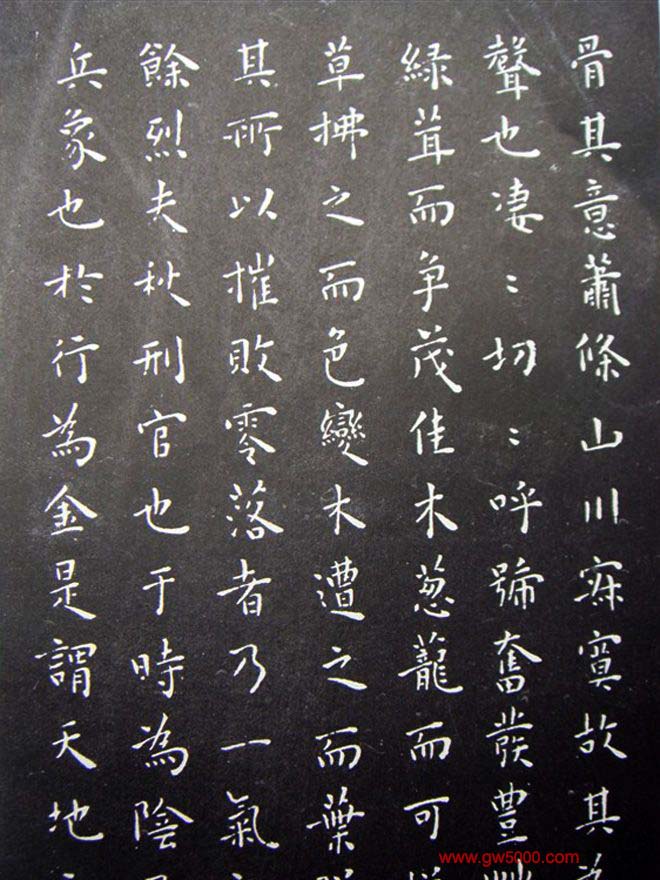 骨其意蕭條山川寂寞故其為
聲也凄〻切〻呼號奮發豐草
緑茸而争茂佳木葱蘢而可
草拂之而色變木遭之而葉
其所以摧敗零落者乃一氣
餘烈夫秋刑官也于時為陰
兵象也於行為金是謂天地
www.gw5000.com